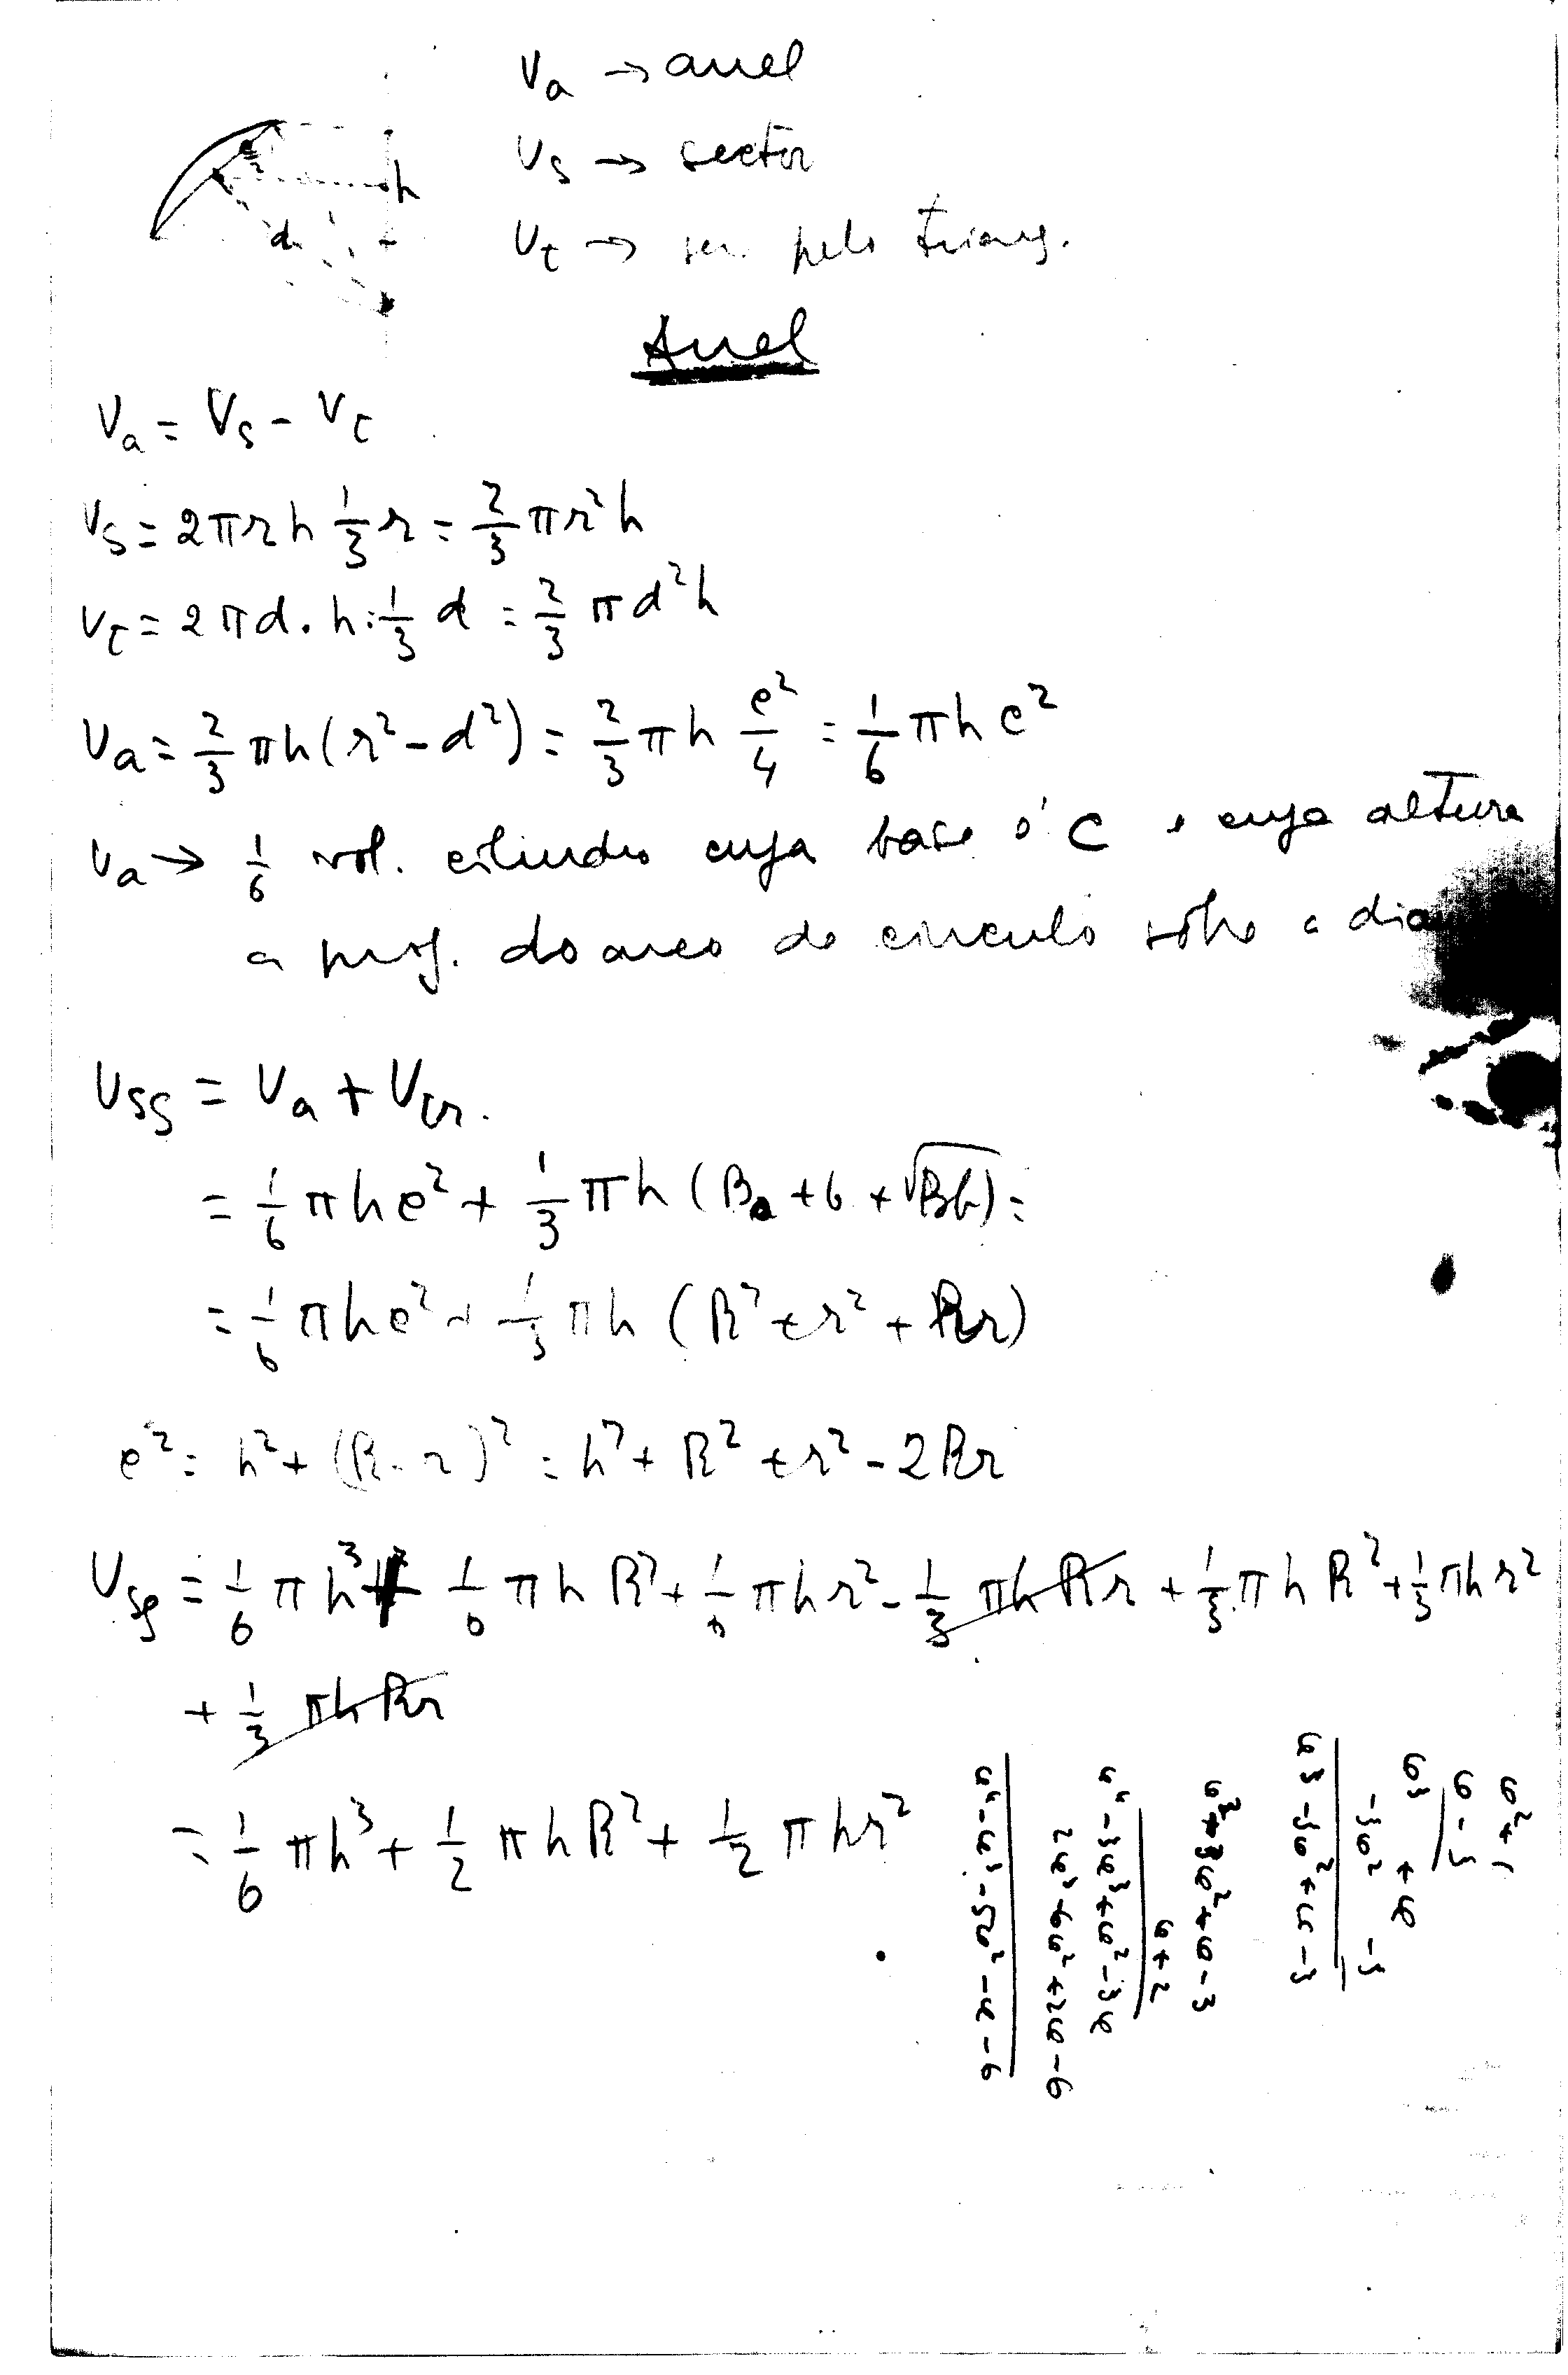 Va → anel
Vs → sector
Vt → ger. pelo triang.
h
d
Anel
Va = Vs - Vt
Vs = 2πrh 1/3 r = 2/3 πr²h
Vt = 2πd.h.1/3 d = 2/3 πd²h
Va = 2/3 πh(r²-d²) = 2/3 πh c²/4 = 1/6 πhc²
Va → 1/6 vol. cilindro cuja base é C e cuja altura
a proj. do arco do circulo sôbre o
Vsg = Va + Vtr.
= 1/6 πhc² + 1/3 πh (B + b + √Bb) =
= 1/6 πhc² + 1/3 πh (R² + r² + Rr)
c² = h² + (R-r)² = h² + R² + r² - 2Rr
Vsg = 1/6 πh³ + 1/6 πhR² + 1/6 πhr² - 1/3 πhRr + 1/3 πhR² + 1/3 πhr²
+ 1/3 πhRr
= 1/6 πh³ + 1/2 πhR² + 1/2 πhr²